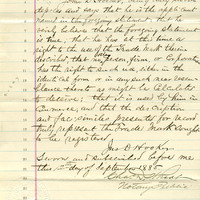 deposes and says that he is the applicant
named in the foregoing statement; that he
verily believes that the foregoing statement
is true; that he has at this time a
right to the use of the Trade Mark therein
described; that no person, firm, or Corporation
has the right to such use, either in the
identical form or in any such near resem-
blance thereto as might be calculated
to deceive; that it is used by him in
Commerce, and that the description
and fac-similes presented for record
truly represent the Trade Mark sought
to be registered.
Sworn and subscribed before me
this day of September 188
Notary Public